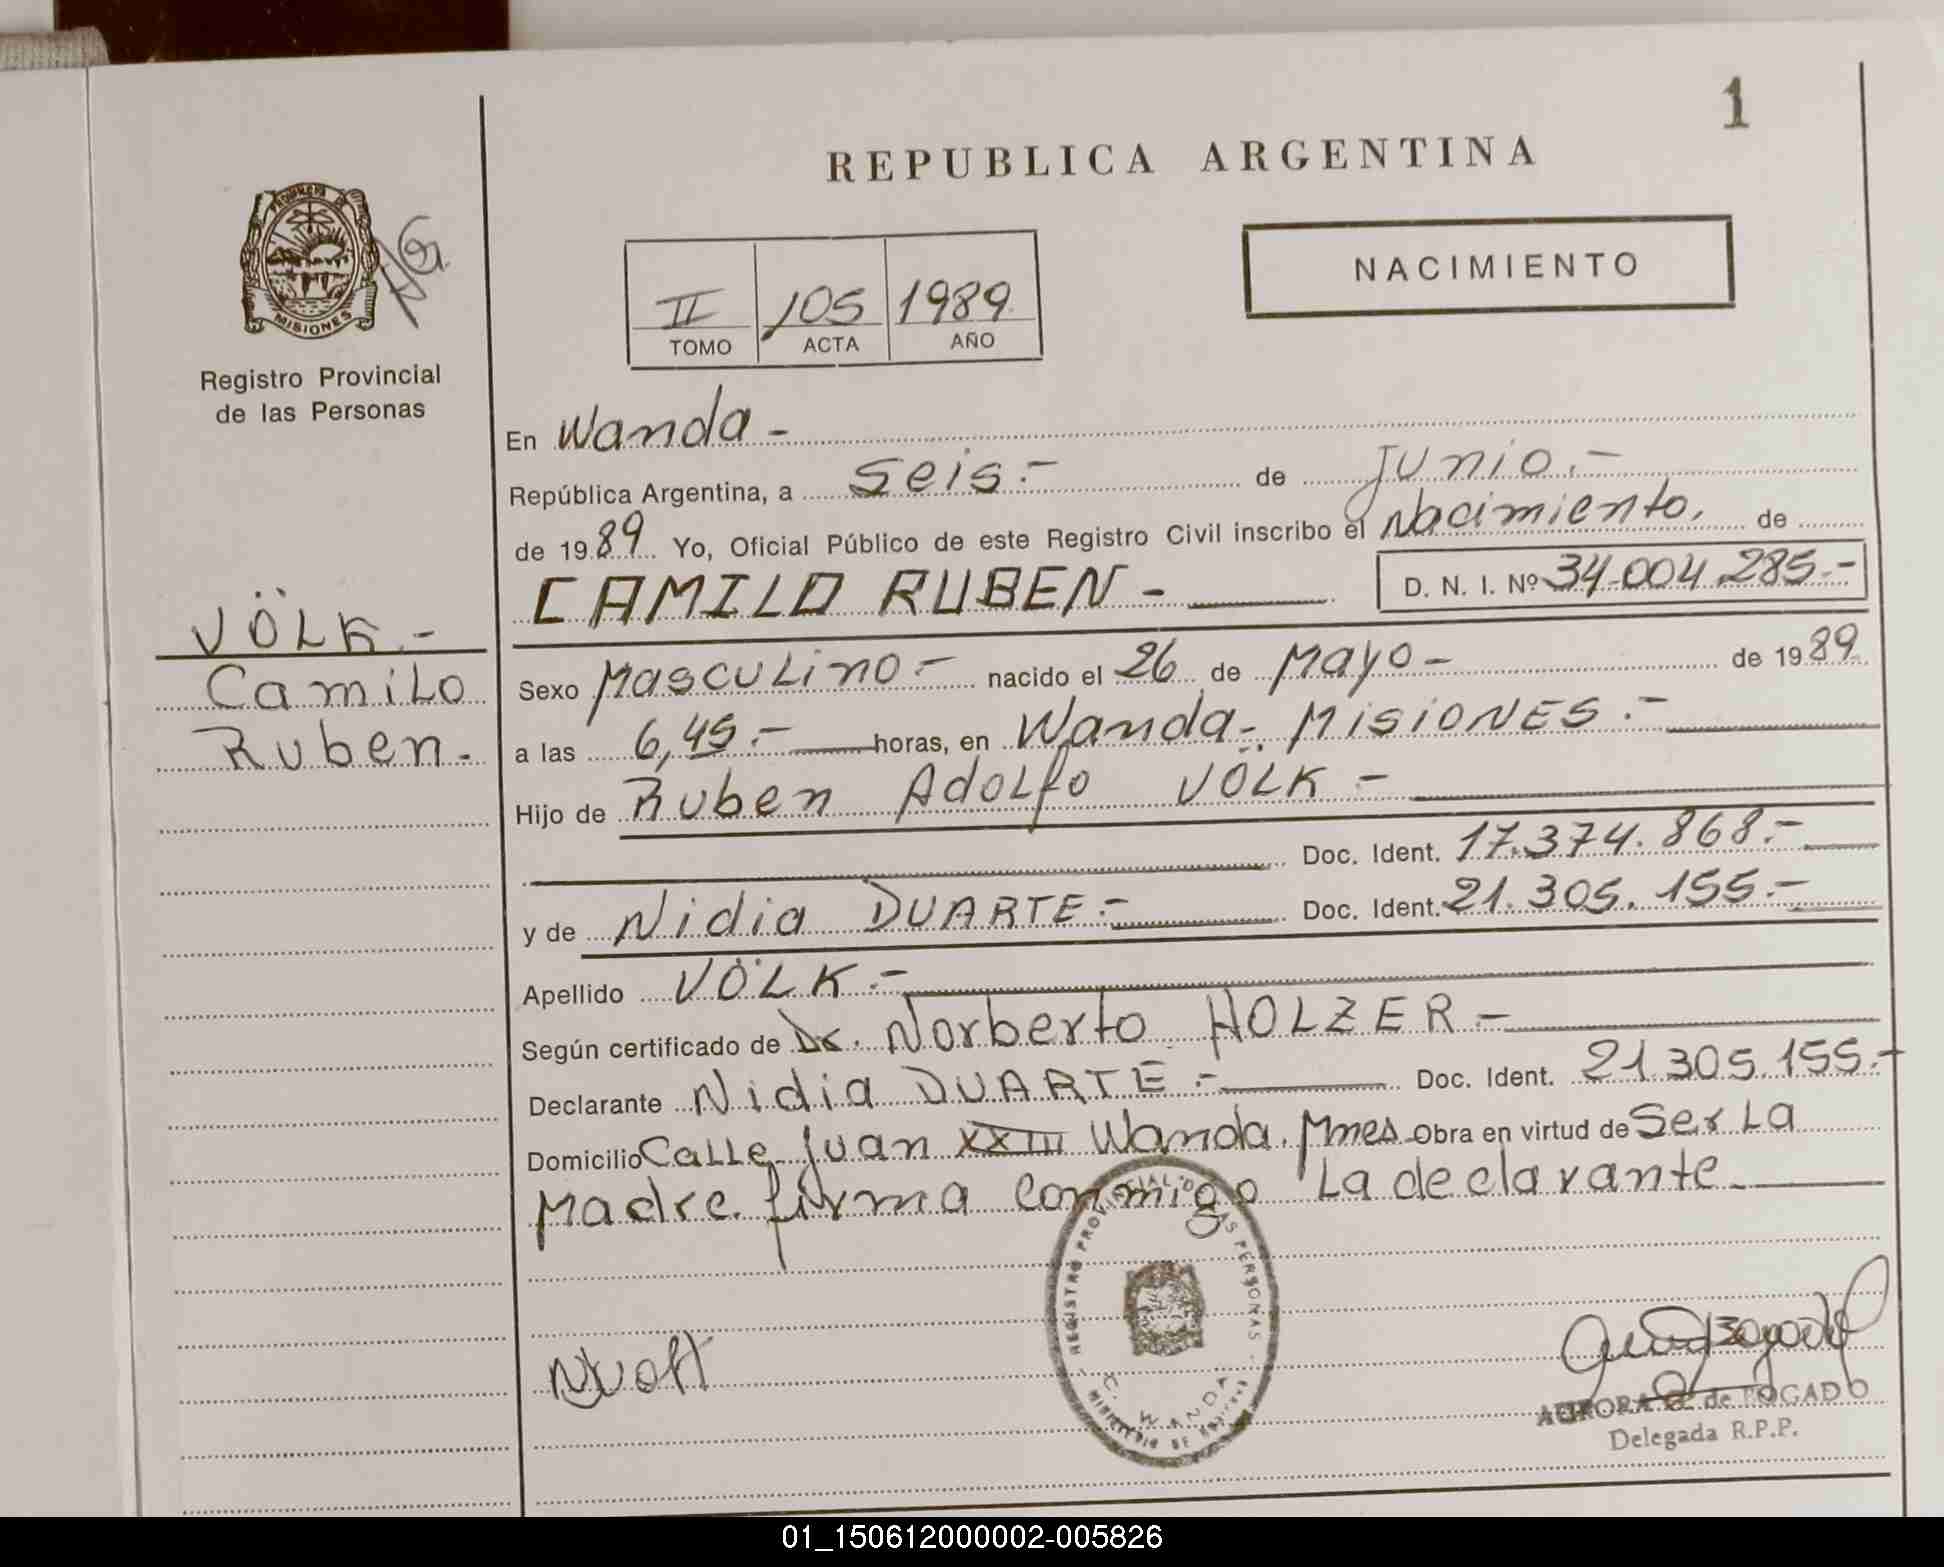 1
REPUBLICA ARGENTINA
NACIMIENTO
PROVINCIA DE
MISIONES
Registro Provincial
de las Personas
II 105 1989
TOMO ACTA AÑO
En Wanda -
República Argentina, a seis.- de Junio.-
de 1989 Yo, Oficial Público de este Registro Civil inscribo el Nacimiento, de
CAMILO RUBEN - D. N. I. Nº 34.004.285.-
VÖLK.-
Camilo
Ruben.-
Sexo Masculino.- nacido el 26 de Mayo - de 1989
a las 6,45.- horas, en Wanda-. MISIONES.-
Hijo de Ruben Adolfo VÖLK -
Doc. Ident. 17.374.868.-
y de Nidia DUARTE.- Doc. Ident. 21.305.155.-
Apellido VÖLK.-
Según certificado de Dr. Norberto HOLZER -
Declarante Nidia DUARTE.- Doc. Ident. 21.305.155.-
Domicilio Calle Juan XXIII Wanda. Mnes Obra en virtud de Ser La
Madre. firma conmigo La declarante
REGISTRO PROVINCIAL DE LAS PERSONAS
WANDA
AURORA de BOGADO
Delegada R.P.P.
01_150612000002-005826